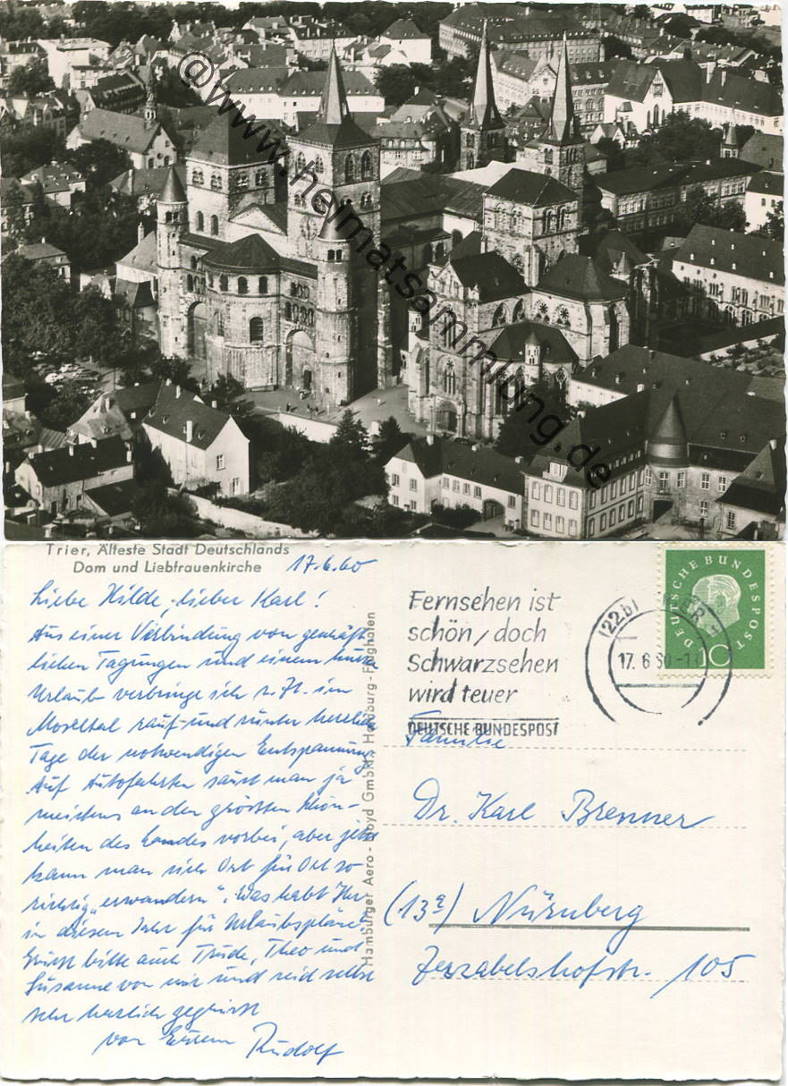 @www.heimatsammlung.de
Trier, Älteste Stadt Deutschlands
Dom und Liebfrauenkirche
17.6.60
Liebe Hilde, lieber Karl!
Aus einer Verbindung von geschäft-
lichen Tagungen und einem kurzen
Urlaub verbringe ich z. Zt. im
Moseltal rauf und runter herrliche
Tage der notwendigen Entspannung.
Auf Autofahrten saust man ja
meistens an den grössten Schön-
heiten des Landes vorbei, aber jetzt
kann man sich Ort für Ort so
richtig „erwandern“. Was habt Ihr
in diesem Jahr für Urlaubspläne?
Grüsst bitte auch Trude, Theo und
Susanne von mir und seid selbst
sehr herzlich gegrüsst
von Eurem Rudolf
Hamburger Aero-Lloyd GmbH., Hamburg-Flughafen
Fernsehen ist
schön, doch
Schwarzsehen
wird teuer
DEUTSCHE BUNDESPOST
(22b)
17. 6. 60
DEUTSCHE BUNDESPOST
10
Familie
Dr. Karl Brenner
(13a) Nürnberg
Zerzabelshofstr. 105